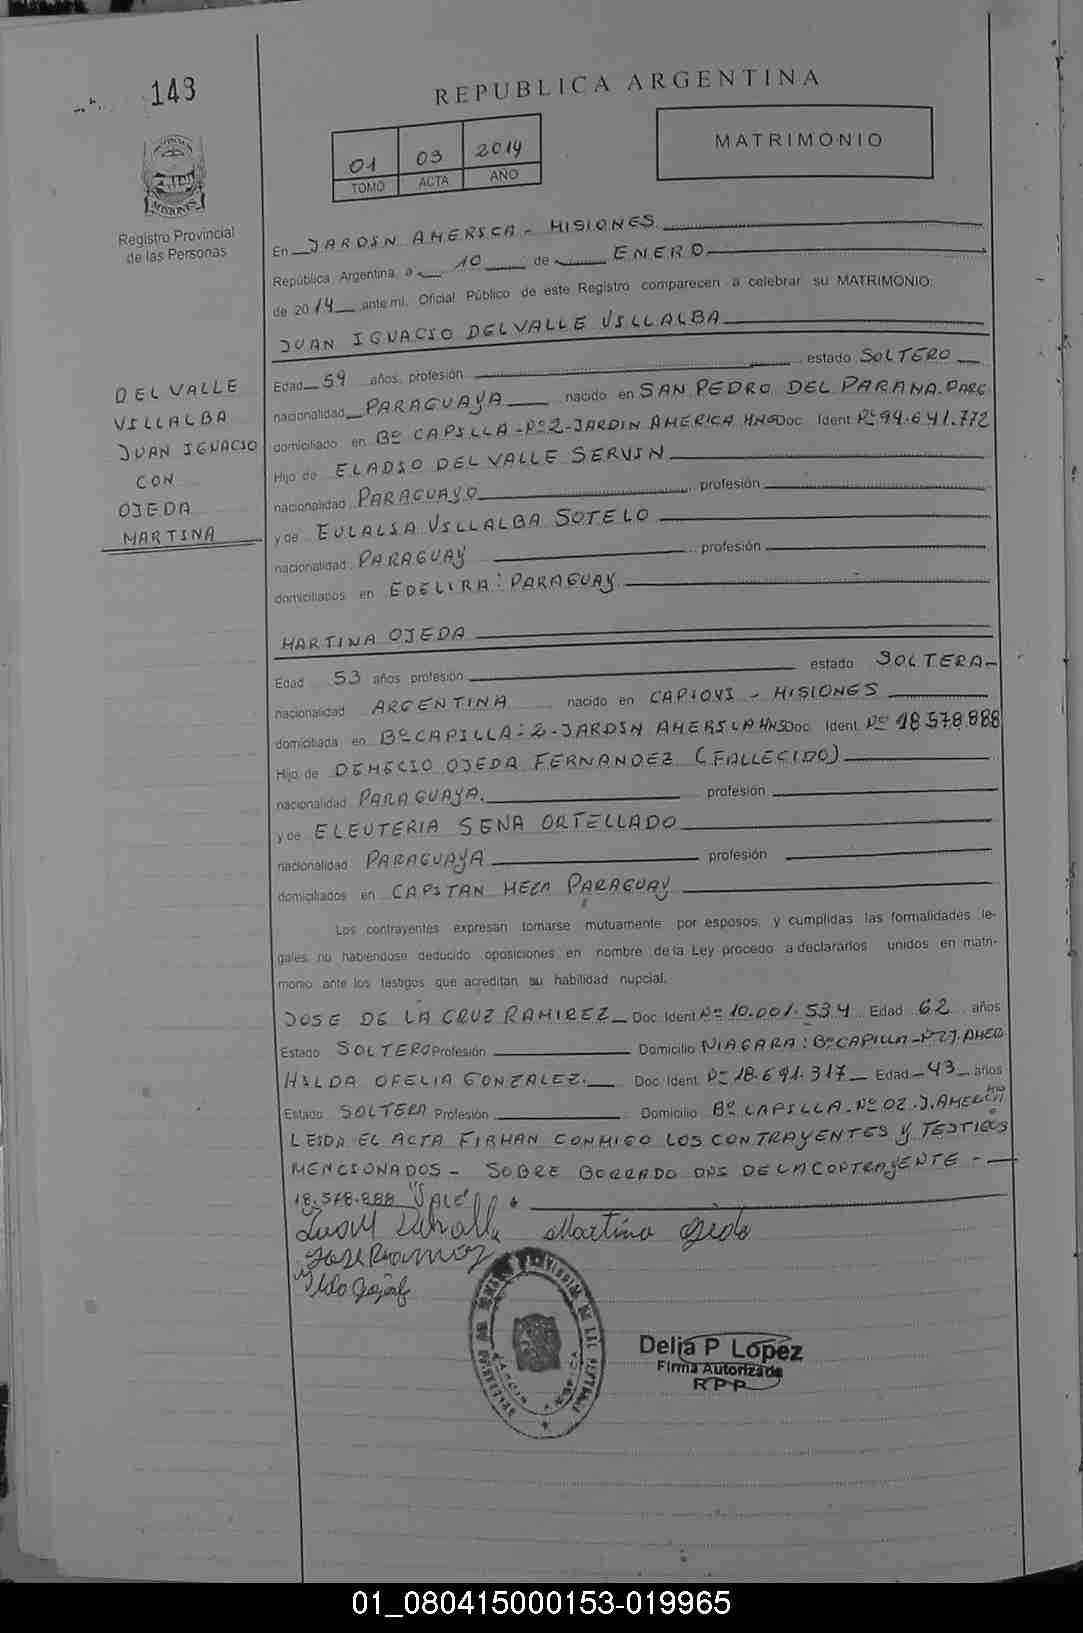 143
REPUBLICA ARGENTINA
MATRIMONIO
01 03 2014
TOMO ACTA AÑO
MISIONES
Registro Provincial
de las Personas
En JARDIN AMERICA - MISIONES
República Argentina, a 10 de ENERO
de 2014 ante mi, Oficial Público de este Registro comparecen a celebrar su MATRIMONIO:
JUAN IGNACIO DEL VALLE VILLALBA
Edad 59 años, profesión estado SOLTERO
nacionalidad PARAGUAYA nacido en SAN PEDRO DEL PARANA-PARG
domiciliado en Bº CAPILLA-Nº2-JARDIN AMERICA MNES Doc. Ident. Nº 94.641.772
Hijo de ELADIO DEL VALLE SERVIN
nacionalidad PARAGUAYO profesión
y de EULALIA VILLALBA SOTELO
nacionalidad PARAGUAY profesión
domiciliados en EDELIRA: PARAGUAY
DEL VALLE
VILLALBA
JUAN IGNACIO
CON
OJEDA
MARTINA
MARTINA OJEDA
Edad 53 años profesión estado SOLTERA-
nacionalidad ARGENTINA nacido en CAPIOVI - MISIONES
domiciliada en Bº CAPILLA: 2-JARDIN AMERICA MNS Doc. Ident. Nº 18.578.888
Hijo de DEMECIO OJEDA FERNANDEZ (FALLECIDO)
nacionalidad PARAGUAYA. profesión
y de ELEUTERIA SENA ORTELLADO
nacionalidad PARAGUAYA profesión
domiciliados en CAPITAN MEZA PARAGUAY
Los contrayentes expresan tomarse mutuamente por esposos, y cumplidas las formalidades le-
gales, no habiéndose deducido oposiciones, en nombre de la Ley procedo a declararlos unidos en matri-
monio ante los testigos que acreditan su habilidad nupcial.
JOSE DE LA CRUZ RAMIREZ Doc. Ident. Nº 10.001.534 Edad 62 años
Estado SOLTERO Profesión Domicilio NIAGARA: Bº CAPILLA-Nº2 J. AMER
HILDA OFELIA GONZALEZ. Doc. Ident. Nº 18.691.317 Edad 43 años
Estado SOLTERA Profesión Domicilio Bº CAPILLA-Nº 02. J. AMERICA
LEIDA EL ACTA FIRMAN CONMIGO LOS CONTRAYENTES Y TESTIGOS
MENCIONADOS - SOBRE BORRADO DNI DE LA CONTRAYENTE -
18.578.888 "VALE"
Martina Ojeda
Jose Ramirez
Delia P López
Firma Autorizada
R P P
01_080415000153-019965